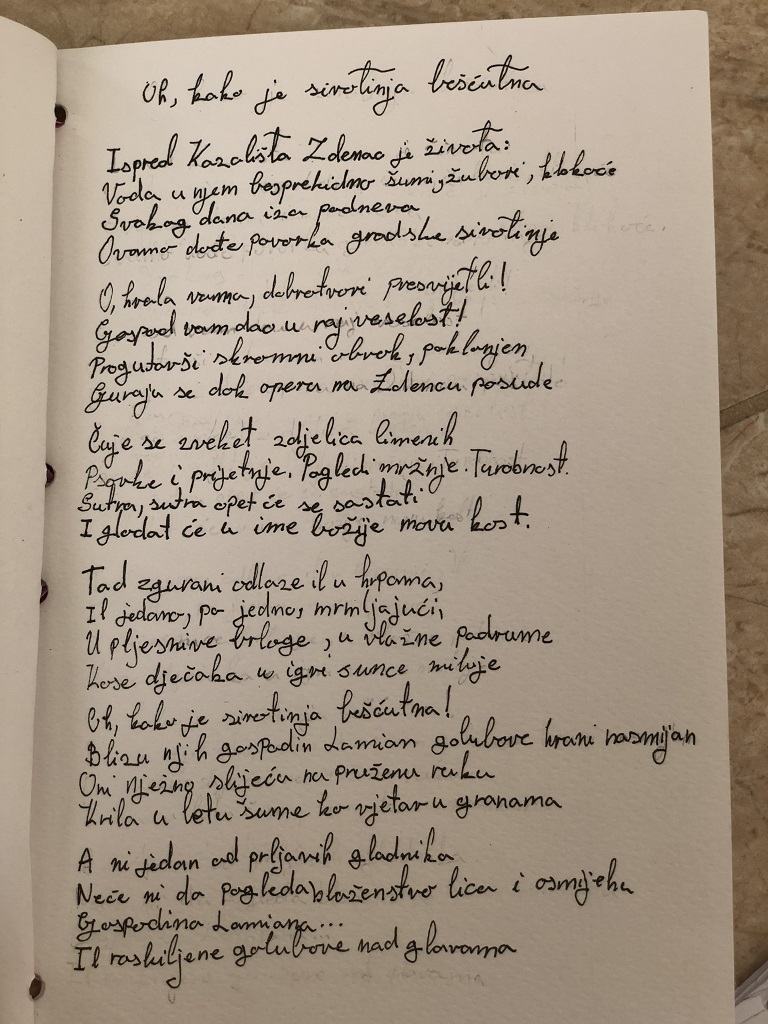 Oh, kako je sirotinja bešćutna
Ispred Kazališta Zdenac je života:
Voda u njem besprekidno šumi, žubori, klokoće
Svakog dana iza podneva
Ovamo dođe povorka gradske sirotinje
O, hvala vama, dobrotvori presvijetli!
Gospod vam dao u raj veselost!
Progutavši skromni obrok, poklonjen
Guraju se dok opera na Zdencu posuđe
Čuje se zveket zdjelica limenih
Psovke i prijetnje. Pogledi mržnje. Turobnost.
Sutra, sutra opet će se sastati
I glodat će u ime božije novu kost.
Tad zgurani odlaze il u hrpama,
Il jedano, po jedno, mrmljajući,
U pljesnive brloge, u vlažne podrume
Kose dječaka u igri sunce miluje
Oh, kako je sirotinja bešćutna!
Blizu njih gospodin Lamian golubove hrani nasmijan
Oni nježno slijeću na pruženu ruku
Krila u letu šume ko vjetar u granama
A ni jedan od prljavih gladnika
Neće ni da pogleda blaženstvo lica i osmijeha
Gospodina Lamiana...
Il raskiljene golubove nad glavama